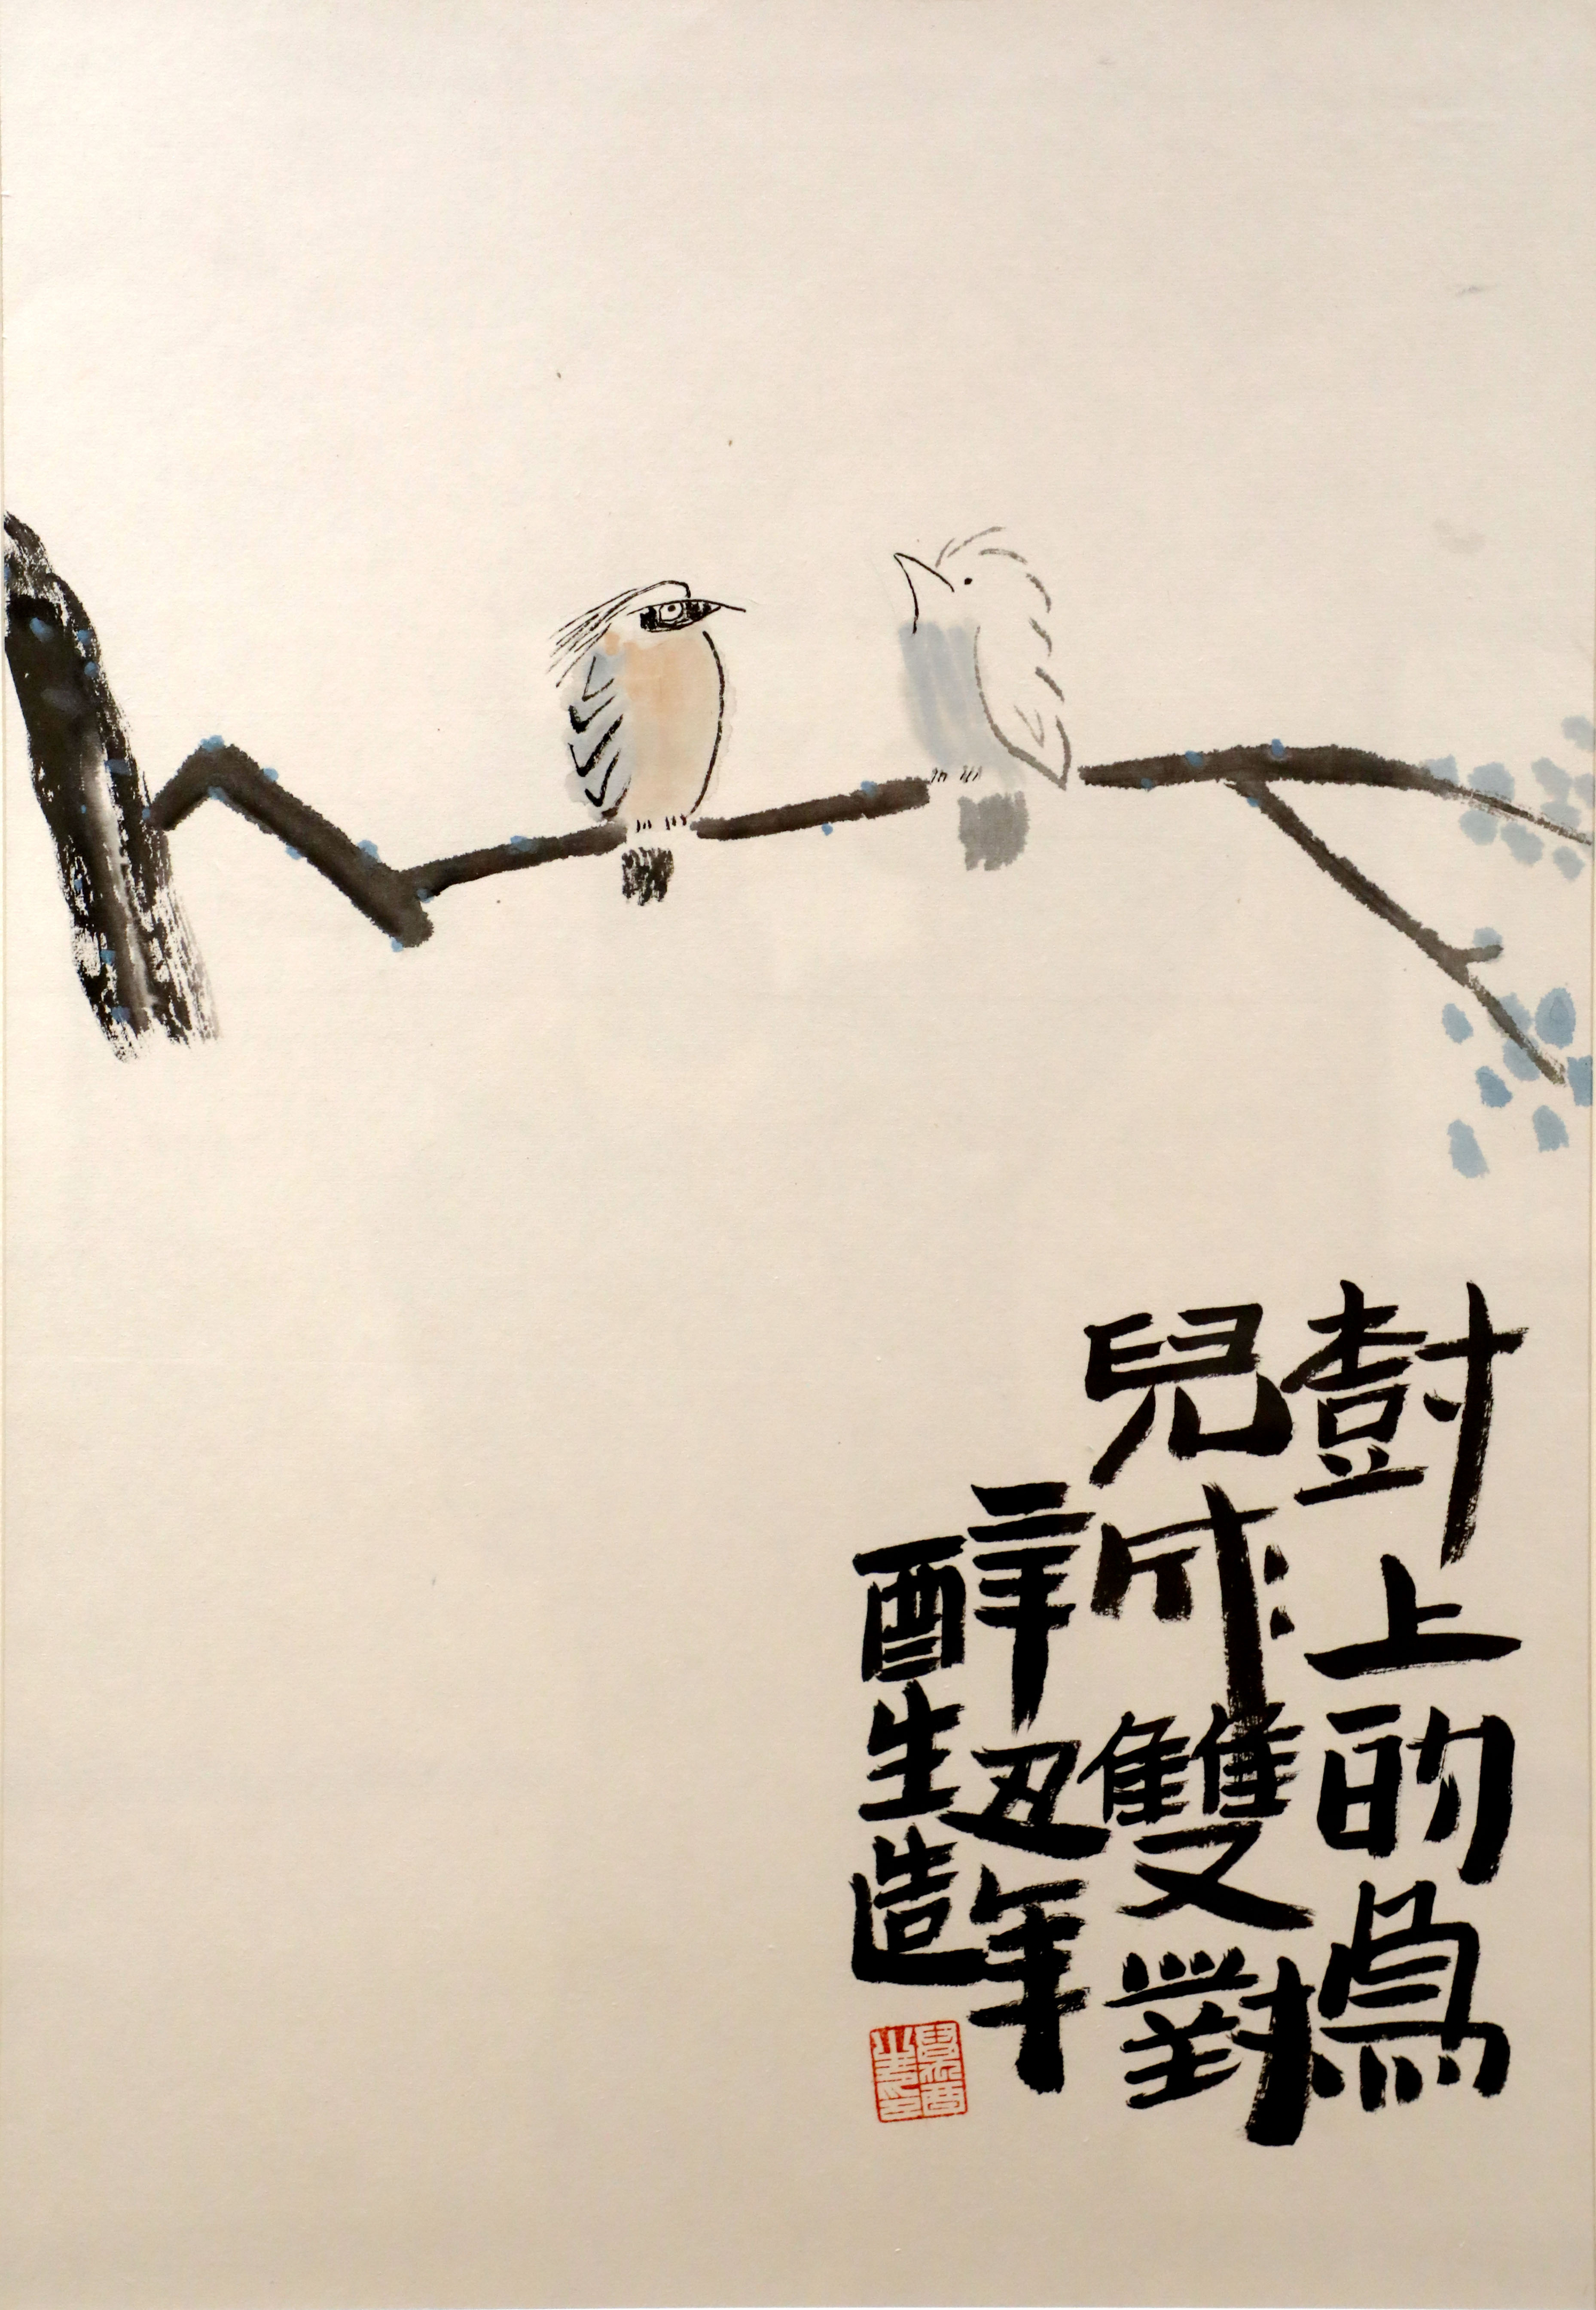 樹上的鳥
兒成雙對
辛丑年
酉生造